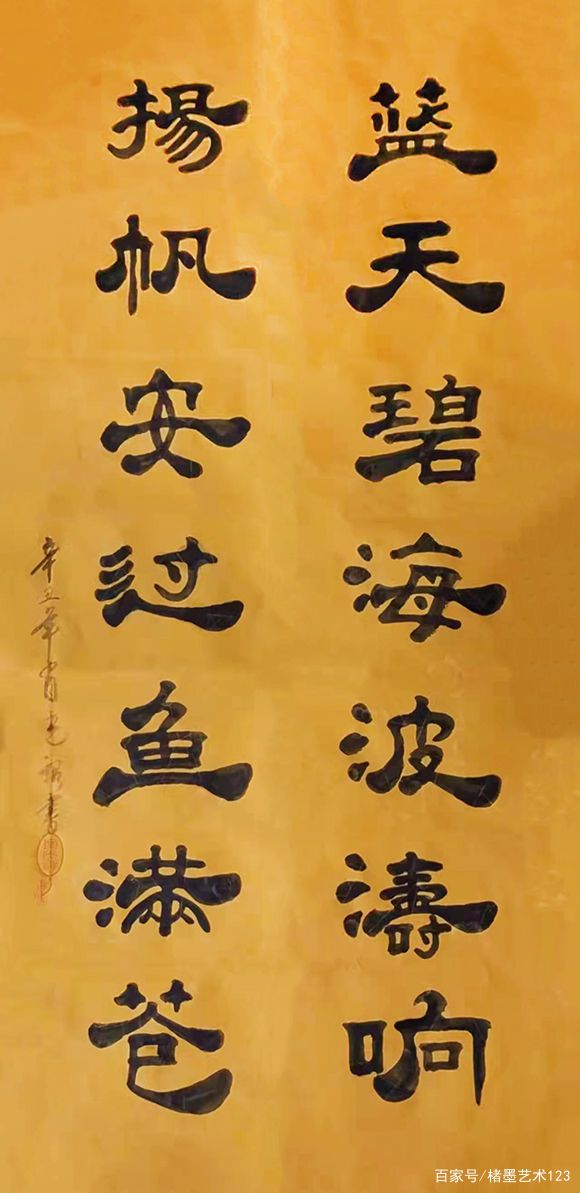 蓝天碧海波濤响
揚帆安过鱼满苍
辛丑年肖 書
百家号/楮墨艺术123